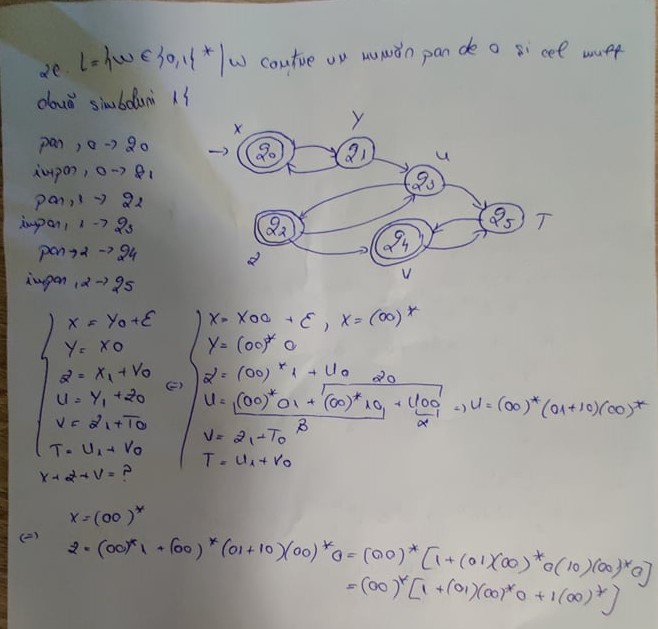 2c. L = {w ∈ {0,1}* | w conține un număr par de 0 și cel mult
două simboluri 1}
par, 0 -> q0
impar, 0 -> q1
par, 1 -> q2
impar, 1 -> q3
par, 2 -> q4
impar, 2 -> q5
X
Y
U
q0
q1
q3
q2
q4
q5
T
Z
V
X = Y0 + ε
Y = X0
Z = X1 + V0
U = Y1 + Z0
V = Z1 + T0
T = U1 + V0
X + Z + V = ?
(=)
X = X00 + ε, X = (00)*
Y = (00)* 0
Z = (00)* 1 + U0
Z0
U = (00)* 01 + (00)* 10 + U00 => U = (00)* (01+10)(00)*
β
α
V = Z1 + T0
T = U1 + V0
X = (00)*
(=)
Z = (00)* 1 + (00)* (01+10)(00)* 0 = (00)* [1 + (01)(00)* 0(10)(00)* 0]
= (00)* [1 + (01)(00)* 0 + 1(00)*]